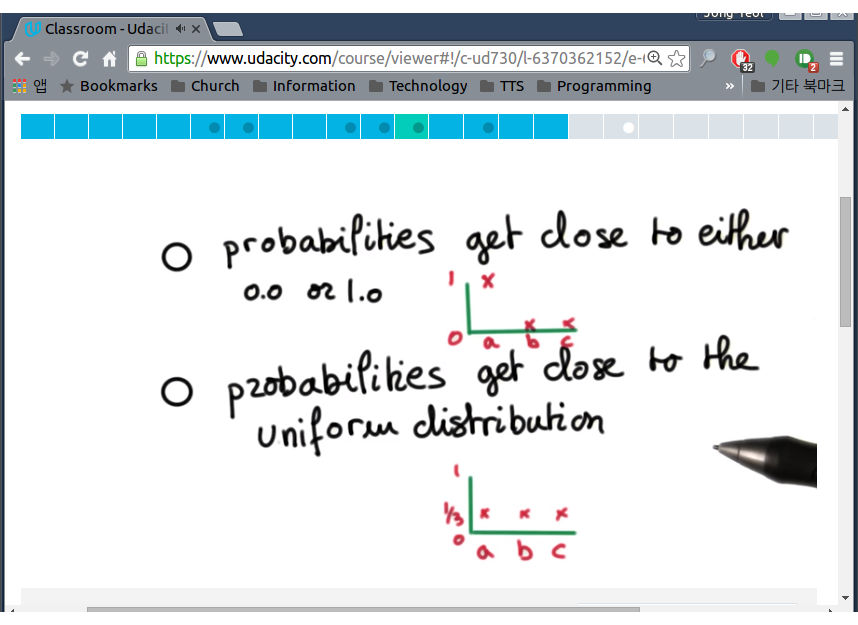 Classroom - Udaci
https://www.udacity.com/course/viewer#!/c-ud730/l-6370362152/e-
32
2
앱 Bookmarks Church Information Technology TTS Programming » 기타 북마크
probabilities get close to either
0.0 or 1.0
1
0 a b c
probabilities get close to the
uniform distribution
1
1/3
0
a b c